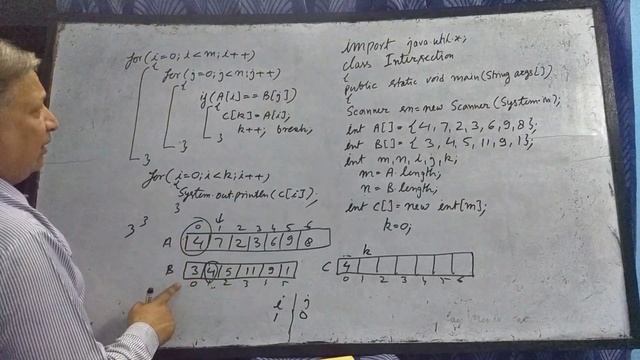 for(i=0; i<m; i++)
{
for(j=0; j<n; j++)
{
if(A[i]==B[j])
{
C[k]=A[i];
k++; break;
}
}
}
for(i=0; i<k; i++)
{
System.out.println(C[i]);
}
}
}
import java.util.*;
class Intersection
{
public static void main(String args[])
{
Scanner sn=new Scanner(System.in);
int A[]={4,7,2,3,6,9,8};
int B[]={3,4,5,11,9,1};
int m,n,i,j,k;
m=A.length;
n=B.length;
int C[]=new int[m];
k=0;
0 1 2 3 4 5 6
A 4 7 2 3 6 9 8
B 3 4 5 11 9 1
0 1 2 3 4 5
k
C 4
0 1 2 3 4 5 6
i j
1 0